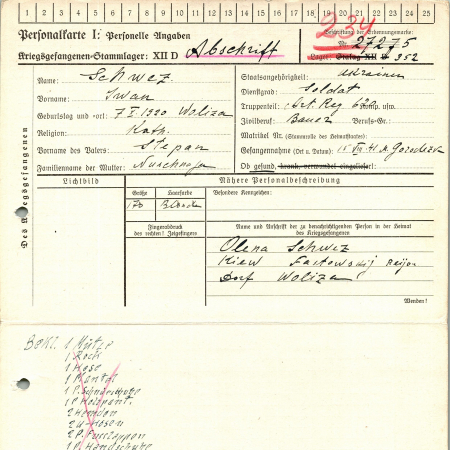 1 2 3 4 5 6 7 8 9 10 11 12 13 14 15 16 17 18 19 20 21 22 23 24 25
Personalkarte I: Personelle Angaben
Kriegsgefangenen-Stammlager: XII D Abschrift
234
Beschriftung der Erkennungsmarke:
Nr. 27275
Lager: Stalag XII 352
Des Kriegsgefangenen
Name: Schwez
Vorname: Iwan
Geburtstag und -ort: 7.I.1920 Woliza
Religion: Kath.
Vorname des Vaters: Stepan
Familienname der Mutter:
Staatsangehörigkeit: Ukrainer
Dienstgrad: Soldat
Truppenteil: Art. Reg usw.
Zivilberuf: Bauer Berufs-Gr.:
Matrikel Nr. (Stammrolle des Heimatstaates):
Gefangennahme (Ort u. Datum): 15.VIII.41
Ob gesund, krank, verwundet eingeliefert:
Lichtbild
Nähere Personalbeschreibung
Größe Haarfarbe Besondere Kennzeichen:
170
Fingerabdruck
des rechten! Zeigefingers
Name und Anschrift der zu benachrichtigenden Person in der Heimat
des Kriegsgefangenen
Olena Schwez
Kiew Fastowskij Raijon
Dorf Woliza
Wenden!
Bekl. 1 Mütze
1 Rock
1 Hose
1 Mantel
1 P. Schnürschuhe
1 P.
2 Hemden
2 U-Hosen
2 P. Fusslappen
1 P. Handschuhe